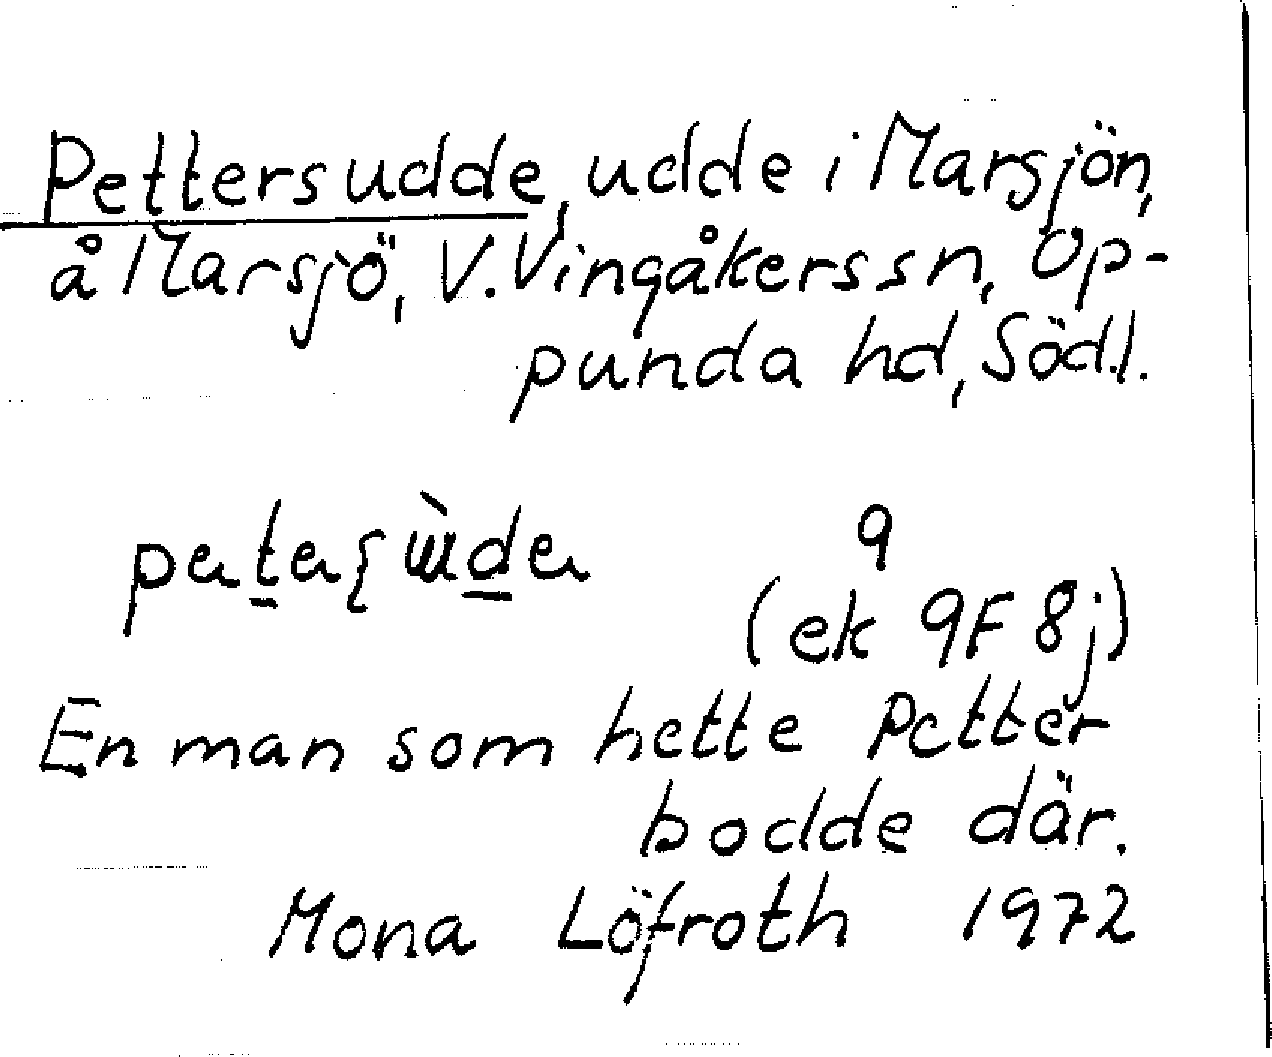 Pettersudde, udde i Marsjön,
å Marsjö, V. Vingåkers sn, Op-
punda hd, Södl.
9
(ek 9F 8j)
En man som hette Petter
bodde där.
Mona Löfroth 1972